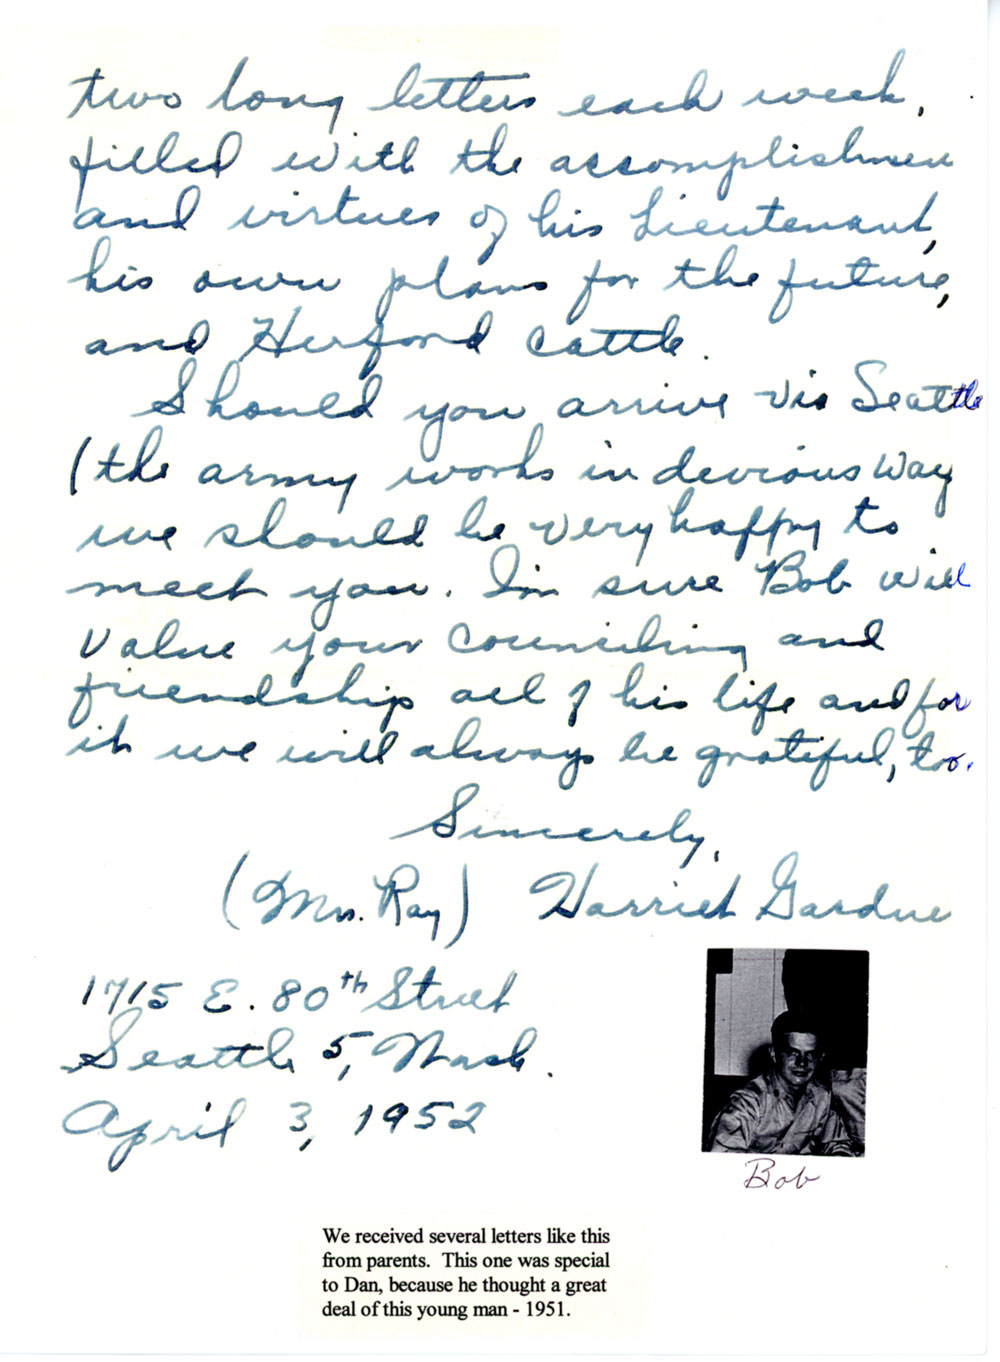 two long letters each week,
filled with the accomplishmen
and virtues of his Lieutenant,
his own plans for the future,
and Herford cattle.
Should you arrive via Seattle
(the army works in devious way
we should be very happy to
meet you. Im sure Bob will
value your counciling and
friendship all of his life and for
it we will always be grateful, too.
Sincerely,
(Mrs. Ray) Harriet Gardue
1715 E. 80th Street
Seattle 5, Wash.
April 3, 1952
Bob
We received several letters like this
from parents. This one was special
to Dan, because he thought a great
deal of this young man - 1951.